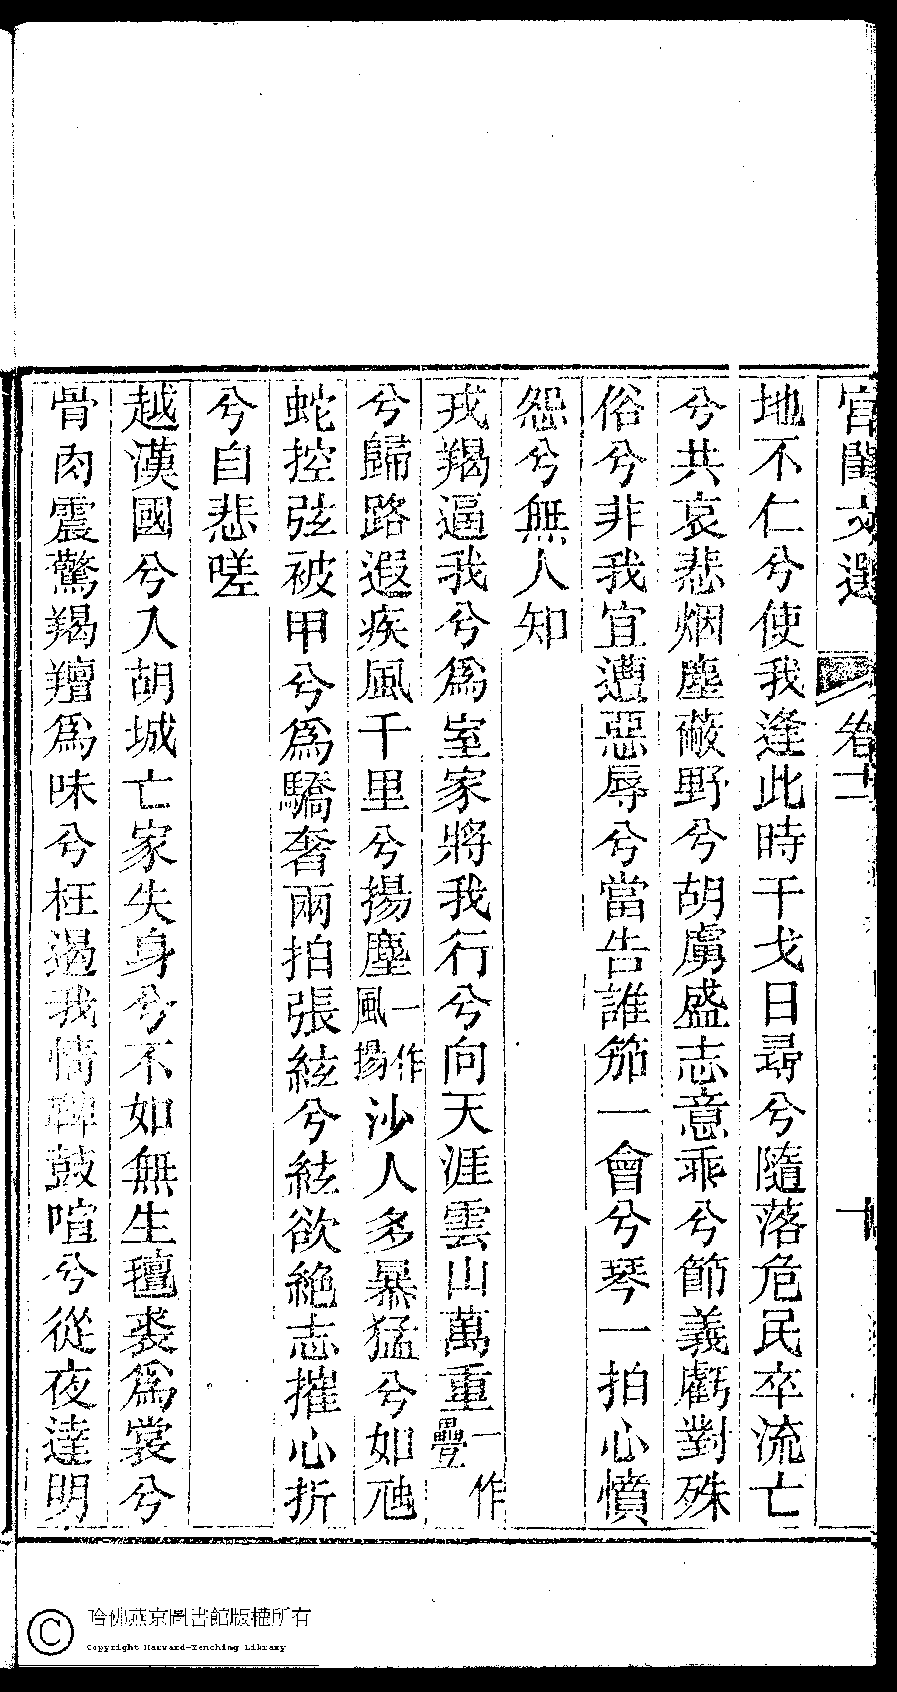 宮閨文選 卷十二 十
地不仁兮使我逢此時干戈日尋兮隨落危民卒流亡
兮共哀悲烟塵蔽野兮胡虜盛志意乖兮節義虧對殊
俗兮非我宜遭惡辱兮當告誰笳一會兮琴一拍心憤
怨兮無人知
戎羯逼我兮爲室家將我行兮向天涯雲山萬重一作疊
兮歸路遐疾風千里兮揚塵一作風揚沙人多暴猛兮如虺
蛇控弦被甲兮爲驕奢兩拍張絃兮絃欲絶志摧心折
兮自悲嗟
越漢國兮入胡城亡家失身兮不如無生氊裘爲裳兮
骨肉震驚羯羶爲味兮枉遏我情鞞鼓喧兮從夜達明
哈佛燕京圖書館版權所有
Copyright Harvard-Yenching Library